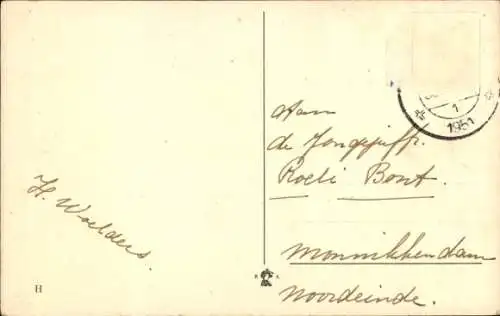 1
1951
Aan
de Jongejuffr.
Roeli Bont.
Monnikkendam
Noordeinde.
H. Woelders.
H